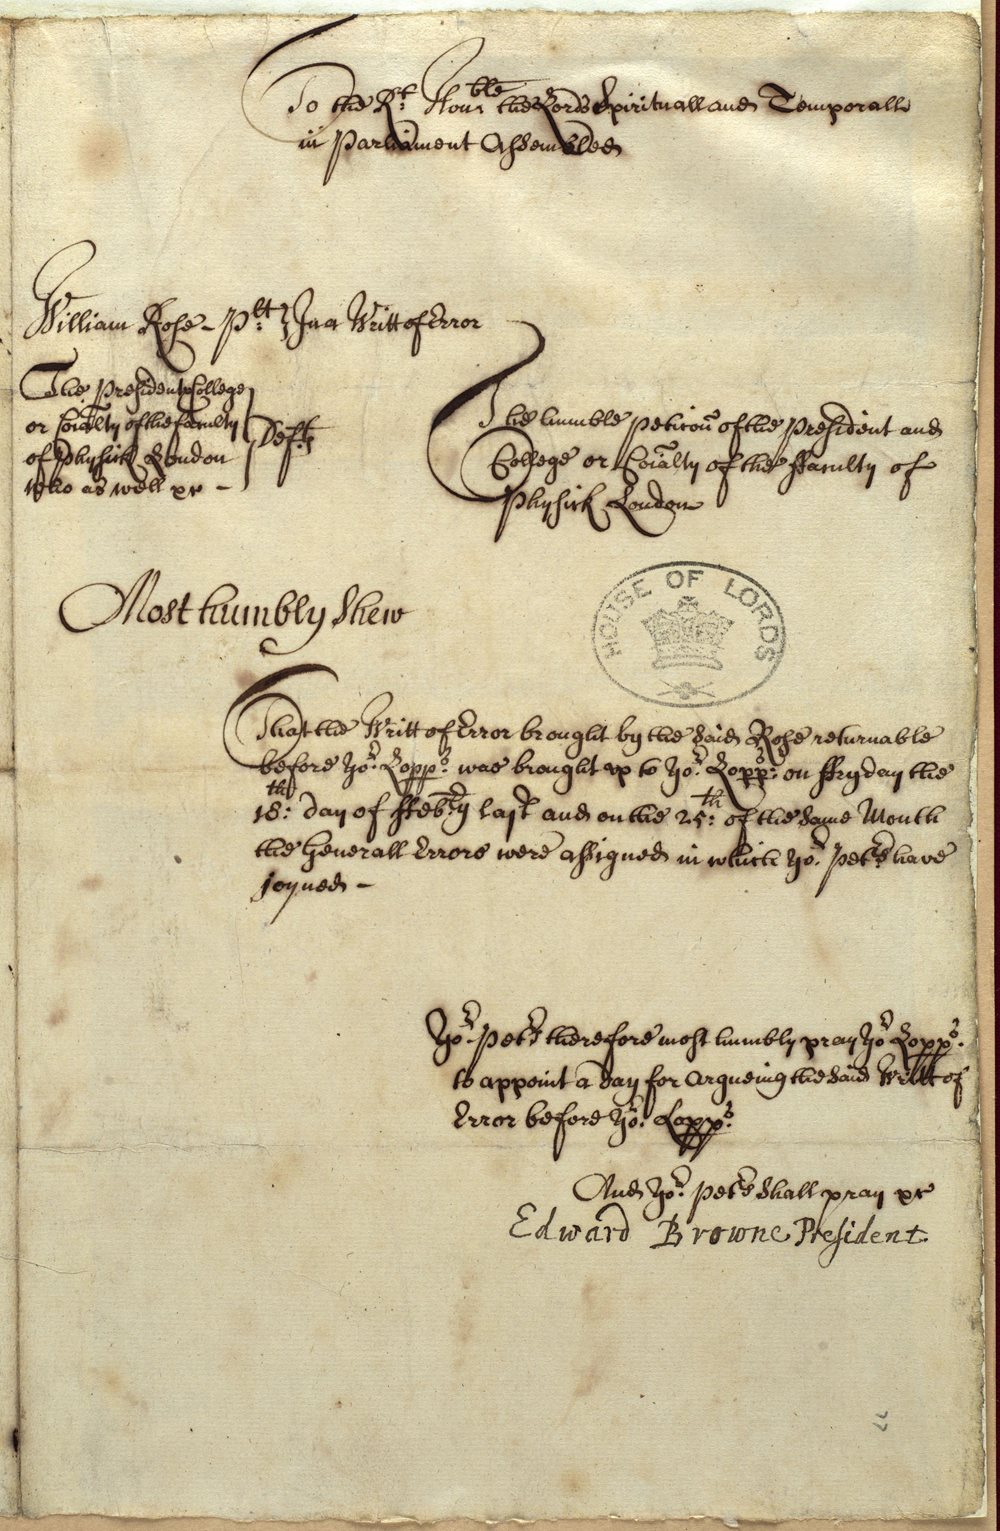 To the Rt. Honble. the Lords Spirituall and Temporall
in Parliament Assembled
William Rose - Plt. } In a Writt of Error
The President & College
or Coialty of the faculty
of Physick London
who as well &c -
Defts.
The humble peticon of the President and
College or Coialty of the ffaculty of
Physick London
Most humbly Shew
That the Writt of Error brought by the said Rose returnable
before yor. Lopps. was brought up to yor. Lopps. on ffryday the
18th: day of ffebry last and on the 25th: of the same Month
the Generall Errors were assigned in which yor. Petrs have
joyned -
Yor. Petrs therefore most humbly pray yor Lopps.
to appoint a day for argueing the said Writt of
Error before yor. Lopps.
And yor. petrs shall pray &c
Edward Browne President
HOUSE OF LORDS